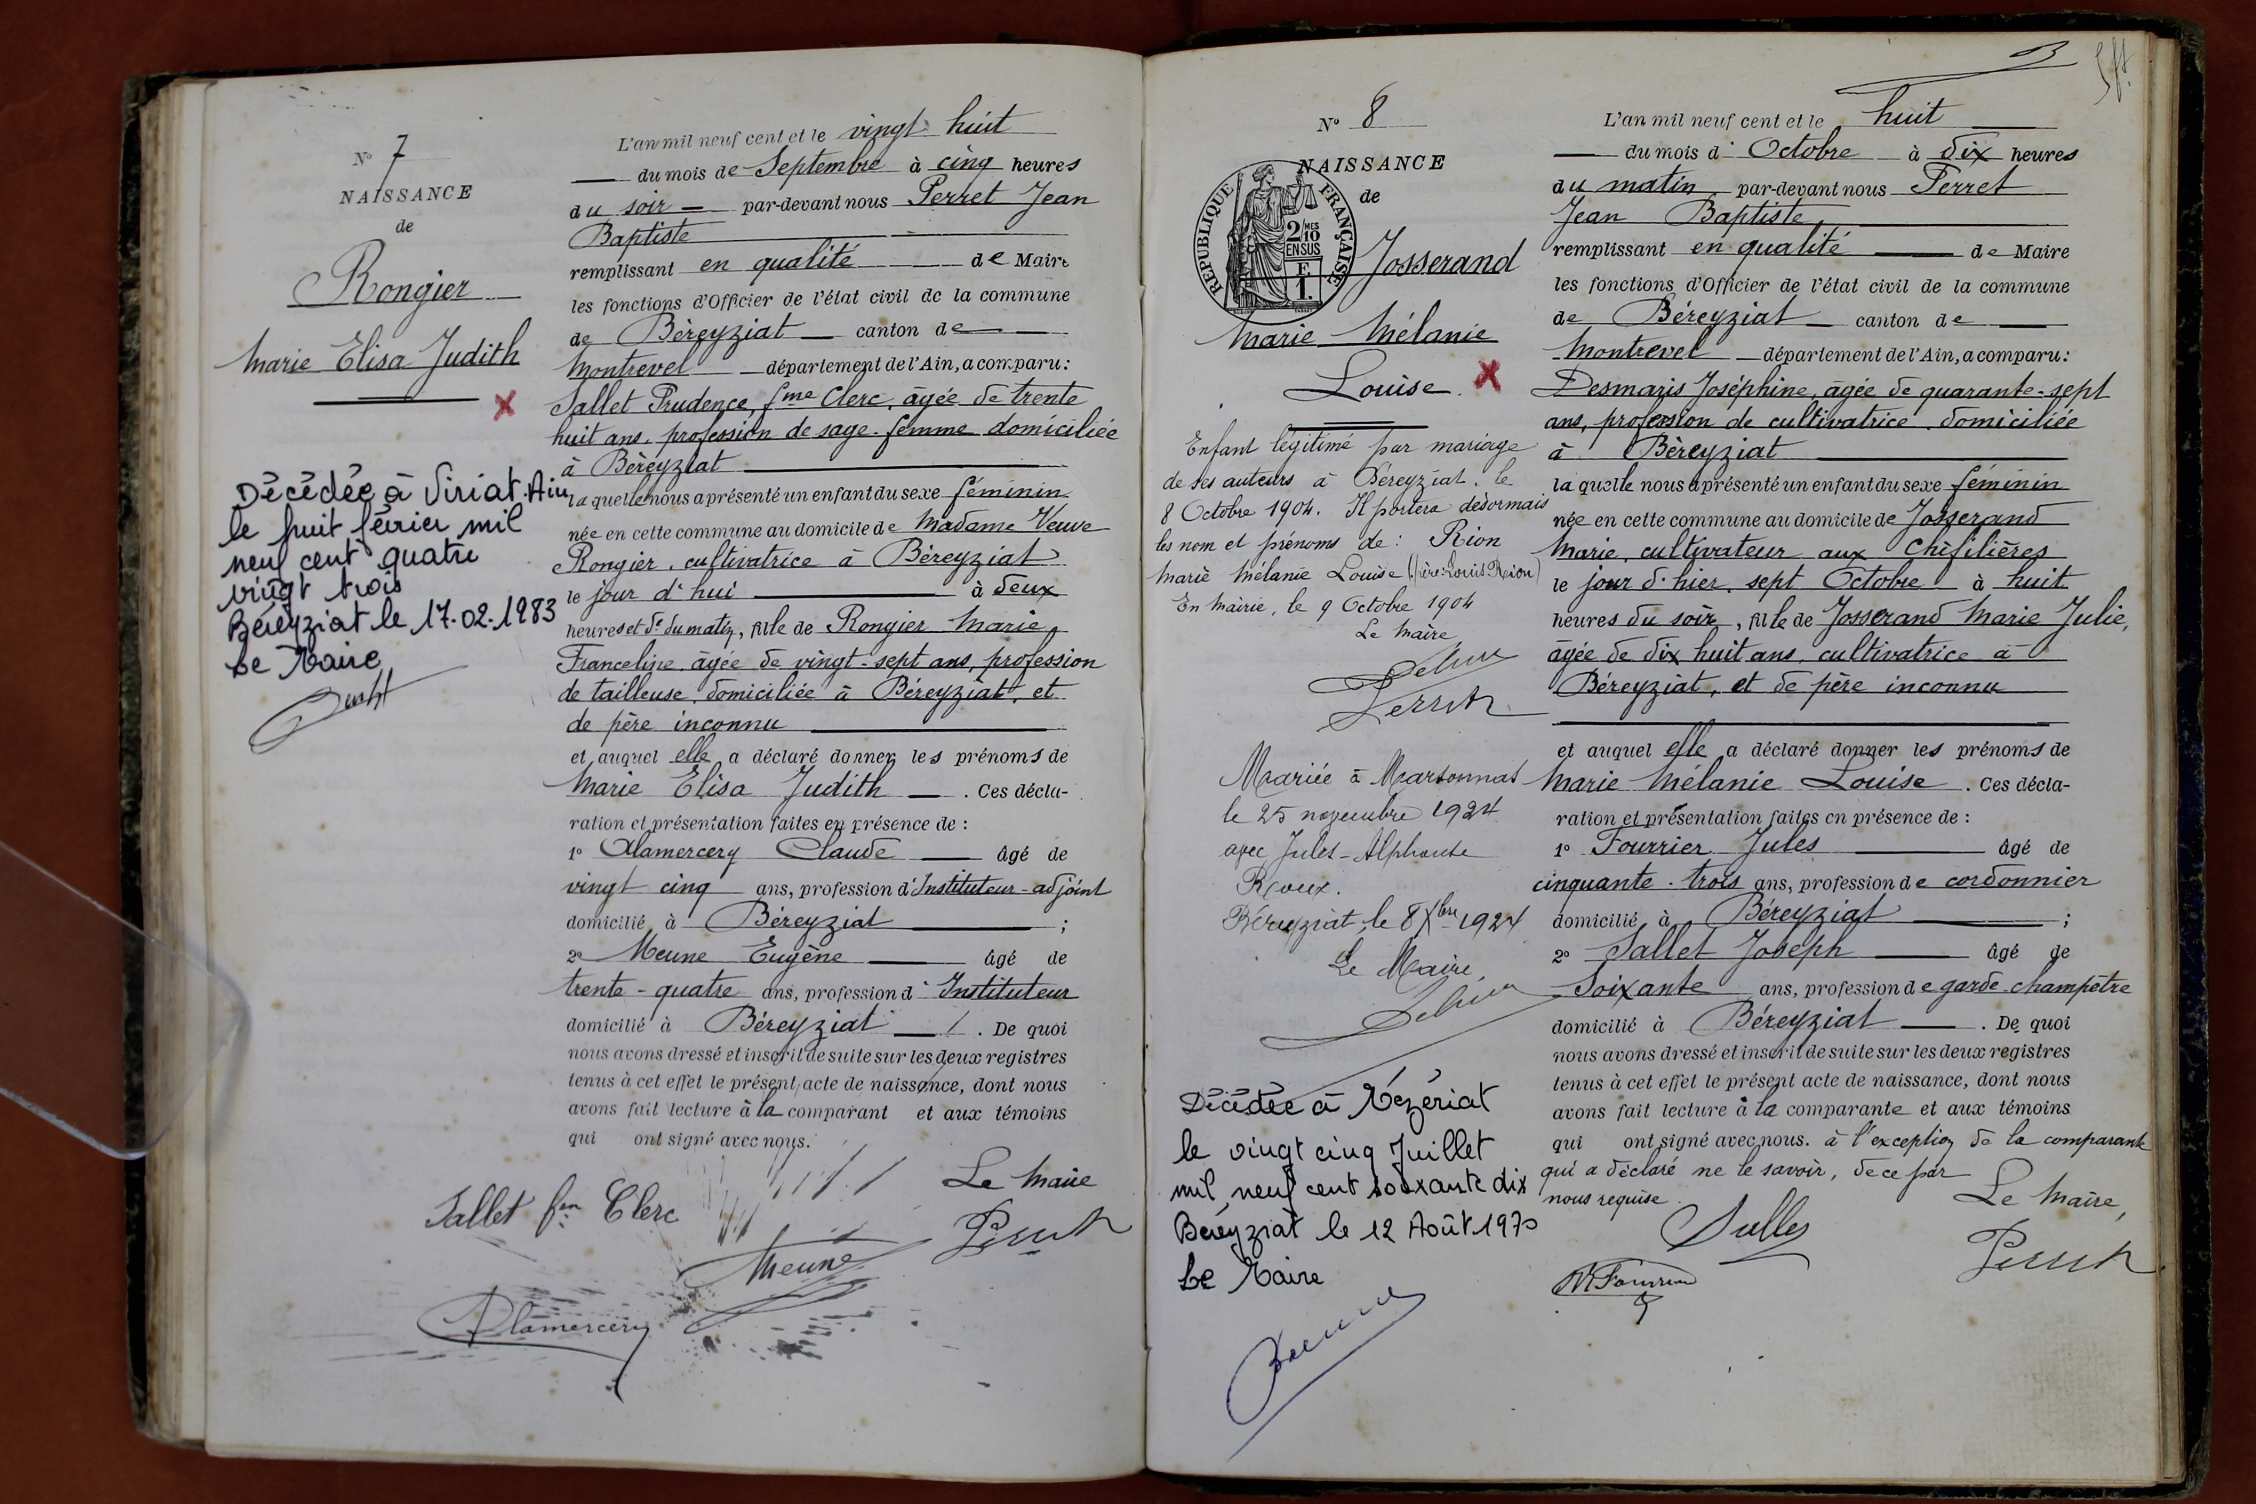 N° 7
NAISSANCE
de
Rongier
Marie Elisa Judith
Décédée à Viriat. Ain
le huit février mil
neuf cent quatre
vingt trois
Béreyziat le 17-02-1983
Le Maire
L'an mil neuf cent et le vingt huit
du mois de Septembre à cinq heures
du soir par-devant nous Perret Jean
Baptiste
remplissant en qualité de Maire
les fonctions d'Officier de l'état civil de la commune
de Béreyziat canton de
Montrevel département de l'Ain, a comparu:
Sallet Prudence, fme Clerc, âgée de trente
huit ans, profession de sage-femme domiciliée
à Béreyziat
la quelle nous a présenté un enfant du sexe féminin
née en cette commune au domicile de Madame Veuve
Rongier, cultivatrice à Béreyziat
le jour d'hui à deux
heures et de du matin, fille de Rongier Marie
Franceline, âgée de vingt-sept ans, profession
de tailleuse, domiciliée à Béreyziat, et
de père inconnu
et auquel elle a déclaré donner les prénoms de
Marie Elisa Judith. Ces décla-
ration et présentation faites en présence de:
1° Alamercery Claude âgé de
vingt cinq ans, profession d'Instituteur-adjoint
domicilié à Béreyziat;
2° Meune Eugène âgé de
trente-quatre ans, profession d'Instituteur
domicilié à Béreyziat. De quoi
nous avons dressé et inscrit de suite sur les deux registres
tenus à cet effet le présent acte de naissance, dont nous
avons fait lecture à la comparant et aux témoins
qui ont signé avec nous.
Le Maire
Sallet fm Clerc
Perret
Meune
Alamercery
N° 8
NAISSANCE
de
REPUBLIQUE FRANÇAISE
2/10 MES
EN SUS
F.
1.
Josserand
Marie Mélanie
Louise.
Enfant légitimé par mariage
de ses auteurs à Béreyziat, le
8 Octobre 1904. Il portera désormais
les nom et prénoms de: Rion
Marie Mélanie Louise (père: Louis Rion)
En Mairie, le 9 Octobre 1904
Le Maire
Perret
Mariée à Marsonnas
le 25 novembre 1924
avec Jules-Alphonse
Roux.
Béreyziat, le 8 Xbre 1924
Le Maire,
Décédée à Mézériat
le vingt cinq Juillet
mil neuf cent soixante dix
Béreyziat le 12 Août 1970
Le Maire
L'an mil neuf cent et le huit
du mois d'Octobre à dix heures
du matin par-devant nous Perret
Jean Baptiste
remplissant en qualité de Maire
les fonctions d'Officier de l'état civil de la commune
de Béreyziat canton de
Montrevel département de l'Ain, a comparu:
Desmaris Joséphine, âgée de quarante-sept
ans, profession de cultivatrice, domiciliée
à Béreyziat
la quelle nous a présenté un enfant du sexe féminin
née en cette commune au domicile de Josserand
Marie, cultivateur aux Chèfilières
le jour d'hier, sept Octobre à huit
heures du soir, fille de Josserand Marie Julie,
âgée de dix huit ans, cultivatrice à
Béreyziat, et de père inconnu
et auquel elle a déclaré donner les prénoms de
Marie Mélanie Louise. Ces décla-
ration et présentation faites en présence de:
1° Fourrier Jules âgé de
cinquante-trois ans, profession de cordonnier
domicilié à Béreyziat;
2° Sallet Joseph âgé de
Soixante ans, profession de garde-champêtre
domicilié à Béreyziat. De quoi
nous avons dressé et inscrit de suite sur les deux registres
tenus à cet effet le présent acte de naissance, dont nous
avons fait lecture à la comparante et aux témoins
qui ont signé avec nous. à l'exception de la comparante
qui a déclaré ne le savoir, de ce par
nous requise.
Le Maire,
Sallet
Perret
Fourrier